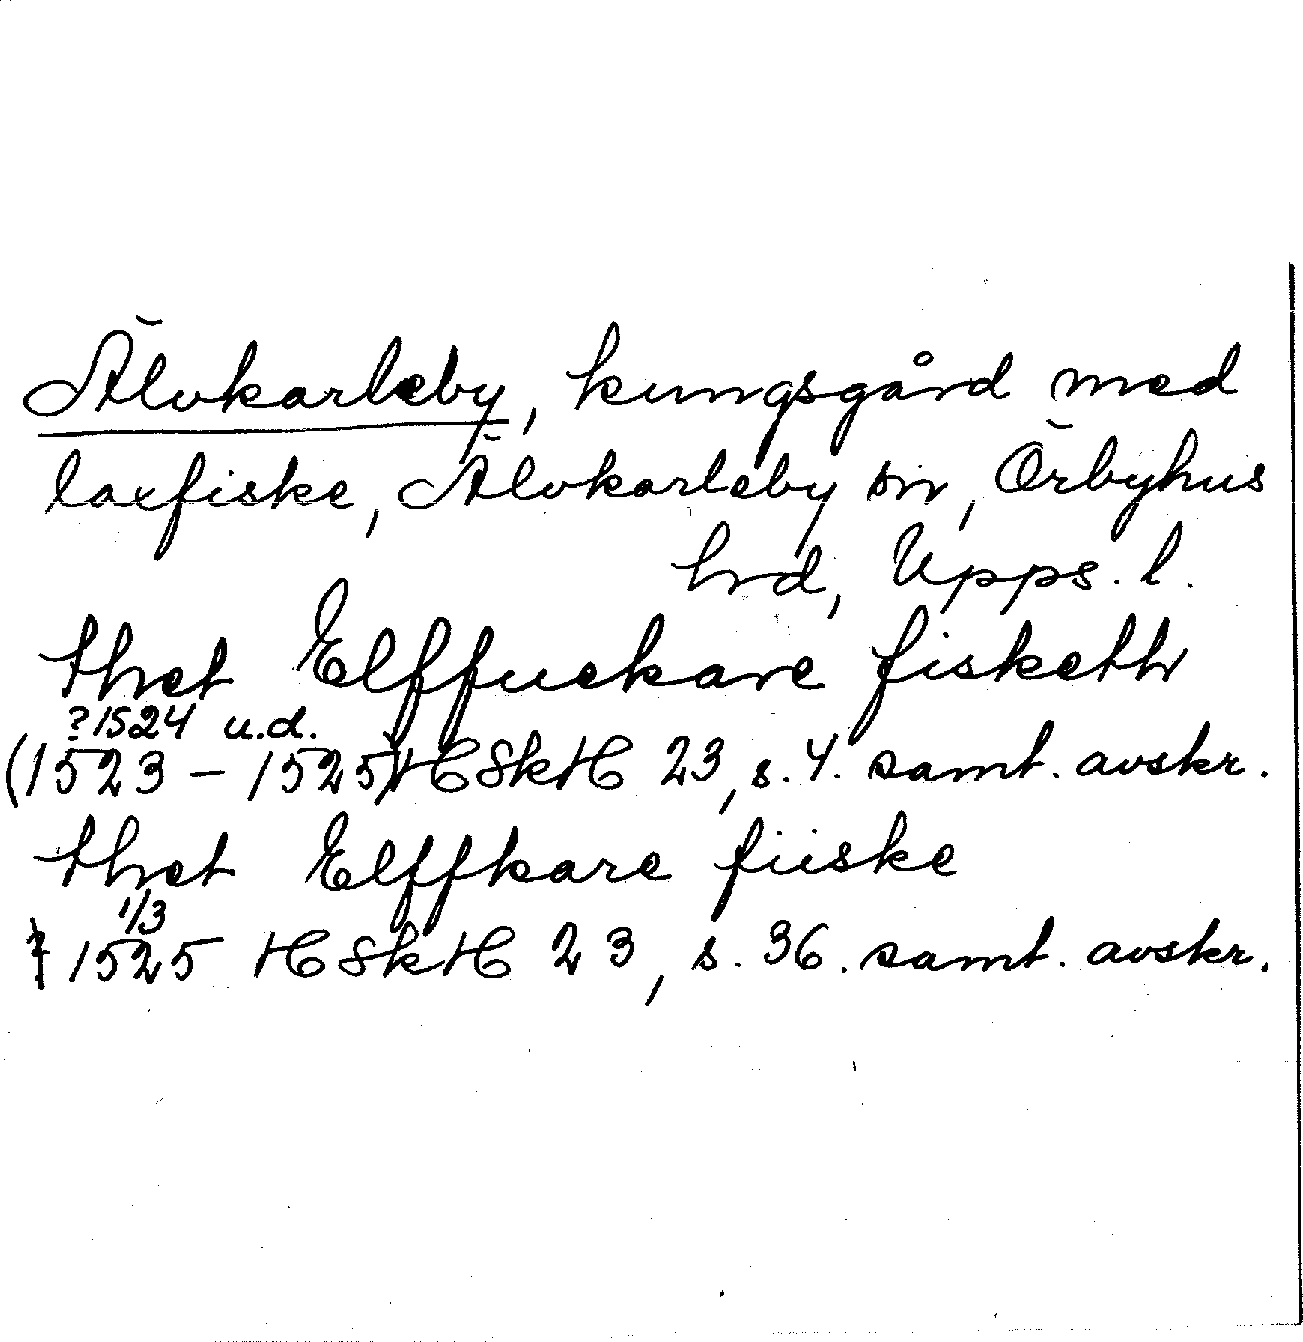 Älvkarleby, kungsgård med
laxfiske, Älvkarleby sn, Örbyhus
hrd, Upps. l.
thet Elffuekare fisketh
?1524 u.d.
(1523 – 1525) HSkH 23, s. 4. samt. avskr.
thet Elffkare fiiske
1/3
1525 HSkH 23, s. 36. samt. avskr.